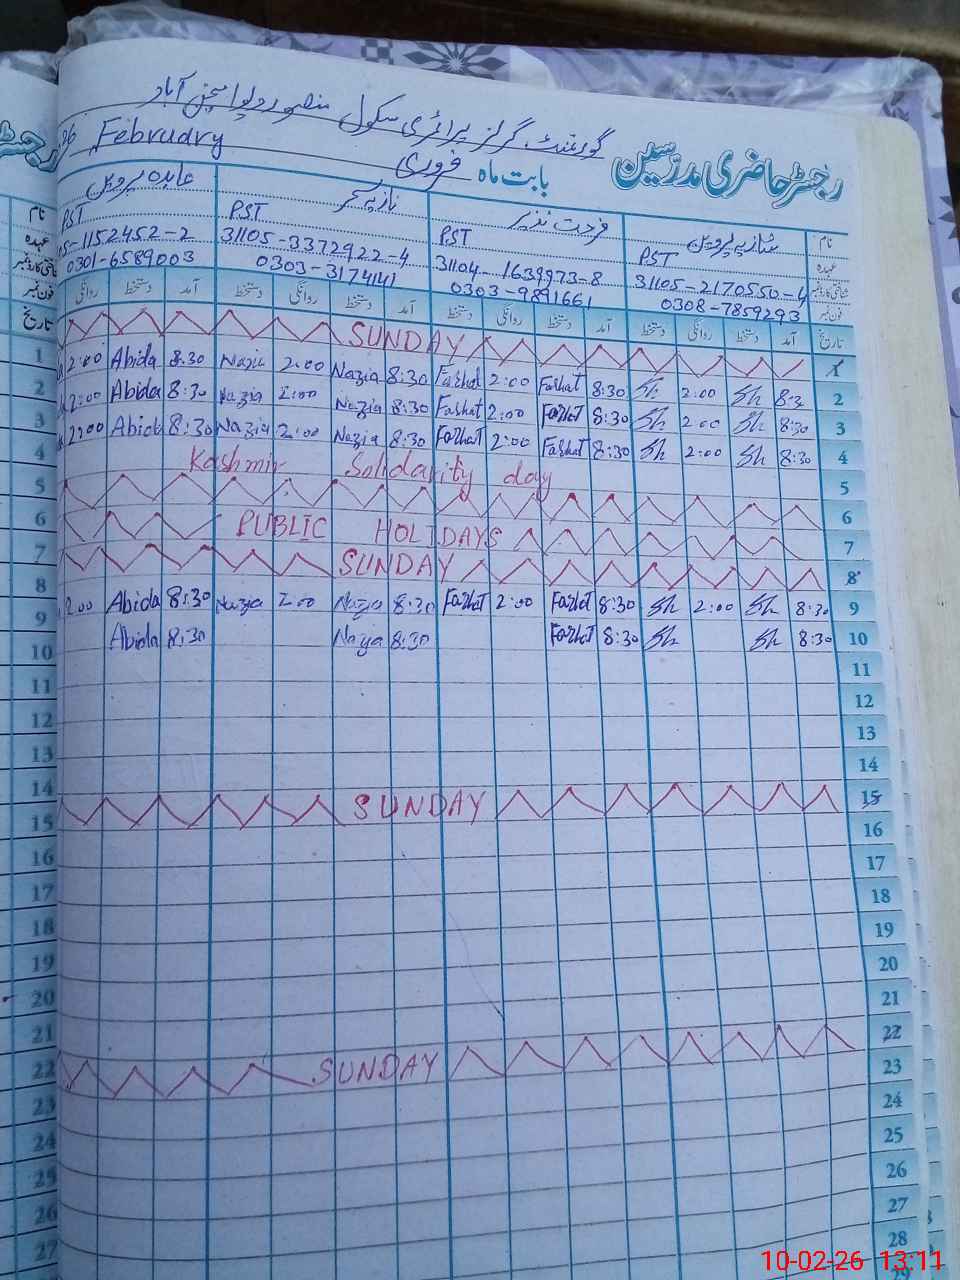 رجسٹر حاضری مدرسین
گورنمنٹ گرلز پرائمری سکول منصور
بابت ماہ فروری February 26
نام شازیہ پروین فرحت نذیر نازیہ سحر عابدہ پروین
عہدہ PST PST PST PST
شناختی کارڈ نمبر 31105-2170550-4 31104-1639973-8 31105-3372922-4 05-1152452-2
فون نمبر 0308-7859293 0303-9891661 0303-3174141 0301-6589003
تاریخ آمد دستخط روانگی دستخط آمد دستخط روانگی دستخط آمد دستخط روانگی دستخط آمد دستخط روانگی
1 SUNDAY
2:00 Abida 8:30 Nazia 2:00 Nazia 8:30 Farhat 2:00 Farhat 8:30 Sh 2:00 Sh 8:3 2
2:00 Abida 8:30 Nazia 2:00 Nazia 8:30 Farhat 2:00 Farhat 8:30 Sh 2:00 Sh 8:30 3
2:00 Abida 8:30 Nazia 2:00 Nazia 8:30 Farhat 2:00 Farhat 8:30 Sh 2:00 Sh 8:30 4
Kashmir Solidarity day 5
6
PUBLIC HOLIDAYS 7
SUNDAY 8
2:00 Abida 8:30 Nazia 2:00 Nazia 8:30 Farhat 2:00 Farhat 8:30 Sh 2:00 Sh 8:30 9
Abida 8:30 Nazia 8:30 Farhat 8:30 Sh Sh 8:30 10
11
12
13
14
SUNDAY 15
16
17
18
19
20
21
22
SUNDAY 23
24
25
26
27
28
29
رجسٹر
نام
عہدہ
شناختی کارڈ نمبر
فون نمبر
تاریخ
1
2
3
4
5
6
7
8
9
10
11
12
13
14
15
16
17
18
19
20
21
22
23
24
25
26
27
10-02-26 13:11